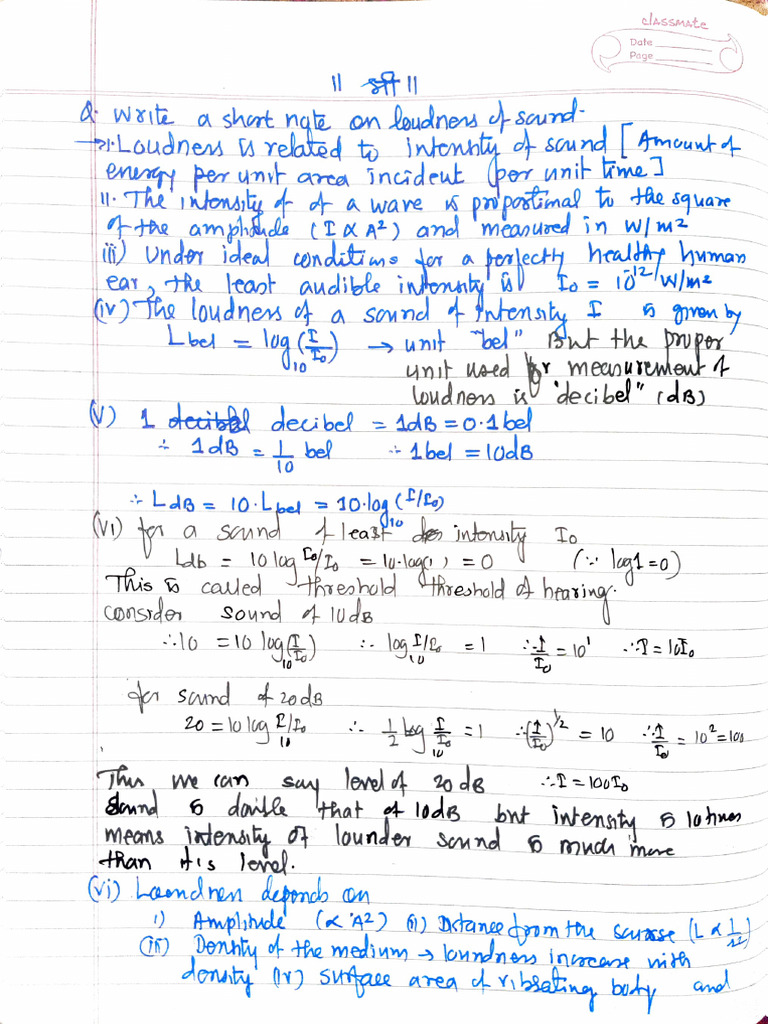 classmate
Date
Page
॥ श्री ॥
Q. Write a short note on loudness of sound.
→ i. Loudness is related to intensity of sound [Amount of
energy per unit area incident per unit time]
ii. The intensity of of a wave is proportional to the square
of the amplitude (I ∝ A²) and measured in W/m²
iii) Under ideal conditions for a perfectly healthy human
ear, the least audible intensity is I₀ = 10⁻¹²W/m²
(iv) The loudness of a sound of intensity I is given by
L bel = log₁₀(I/I₀) → unit "bel" But the proper
unit used for measurement of
loudness is "decibel" (dB)
(v) 1 decibel decibel = 1dB = 0.1bel
∴ 1dB = 1/10 bel ∴ 1bel = 10dB
∴ L dB = 10·L bel = 10·log₁₀(I/I₀)
(vi) for a sound of least intensity I₀
L db = 10 log I₀/I₀ = 10·log(1) = 0 (∵ log1=0)
This is called threshold threshold of hearing.
consider sound of 10dB
∴10 = 10 log₁₀(I/I₀) ∴ log₁₀ I/I₀ = 1 ∴ I/I₀ = 10¹ ∴ I = 10I₀
for sound of 20dB
20 = 10 log₁₀ I/I₀ ∴ 1/2 log₁₀ I/I₀ = 1 ∴ (I/I₀)^1/2 = 10 ∴ I/I₀ = 10² = 100
Thus we can say level of 20 dB ∴ I = 100I₀
sound is double that of 10dB but intensity is 10 times
means intensity of lounder sound is much more
than it is level.
(vi) Loundness depends on
i) Amplitude (∝ A²) (ii) Distance from the source (L ∝ 1/r²)
(iii) Density of the medium → loundness increase with
density (iv) surface area of vibrating body and